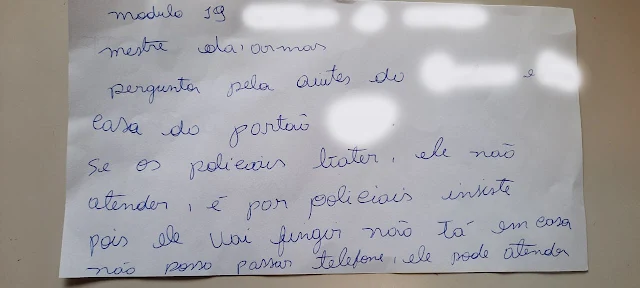 modulo 19
mestre da, armas
pergunta pela antes do e
casa do portão
se os policiais bater, ele não
atender, é por policiais insiste
pois ele vai fungir não tá em casa
não posso passar telefone, ele pode atender